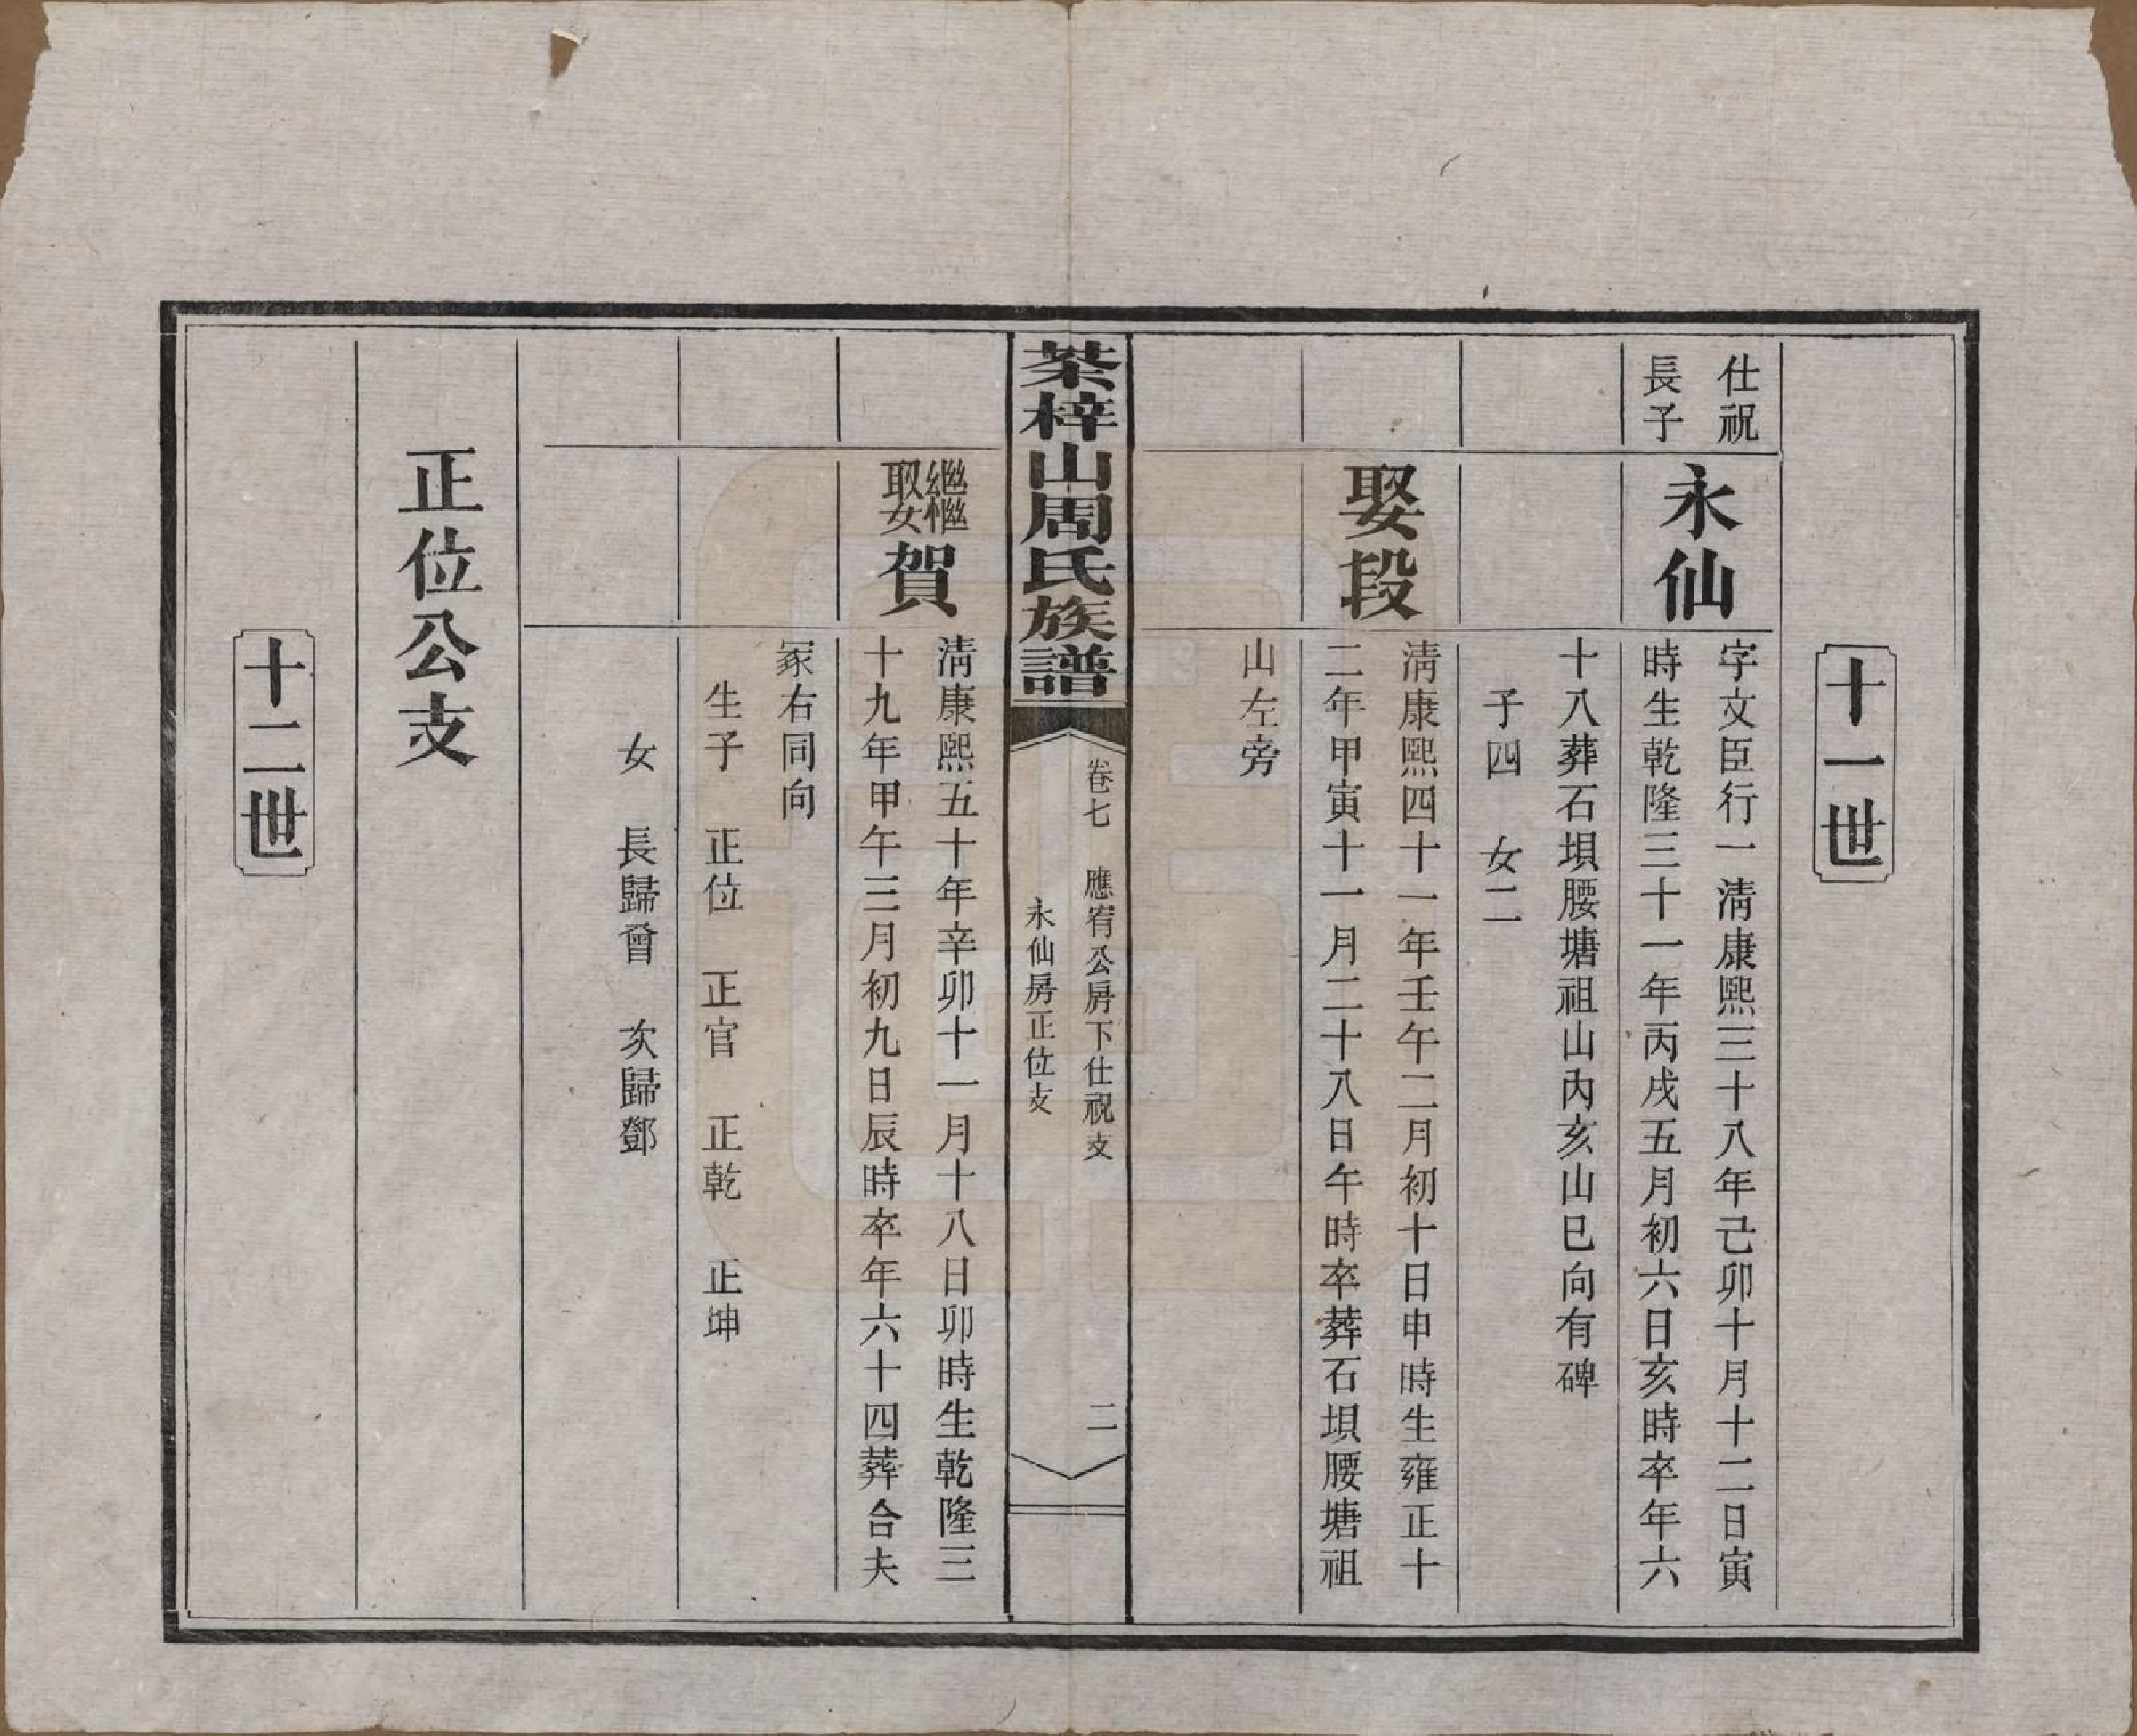 十一世
仕祝
長子
永仙
字文臣行一淸康熙三十八年己卯十月十二日寅
時生乾隆三十一年丙戌五月初六日亥時卒年六
十八葬石垻腰塘祖山內亥山巳向有碑
子四　女二
娶段
淸康熙四十一年壬午二月初十日申時生雍正十
二年甲寅十一月二十八日午時卒葬石垻腰塘祖
山左旁
茶梓山周氏族譜
卷七　應宥公房下仕祝支
永仙房正位支
二
繼娶賀
淸康熙五十年辛卯十一月十八日卯時生乾隆三
十九年甲午三月初九日辰時卒年六十四葬合夫
冡右同向
生子　正位　正官　正乾　正坤
女　長歸曾　次歸鄧
正位公支
十二世